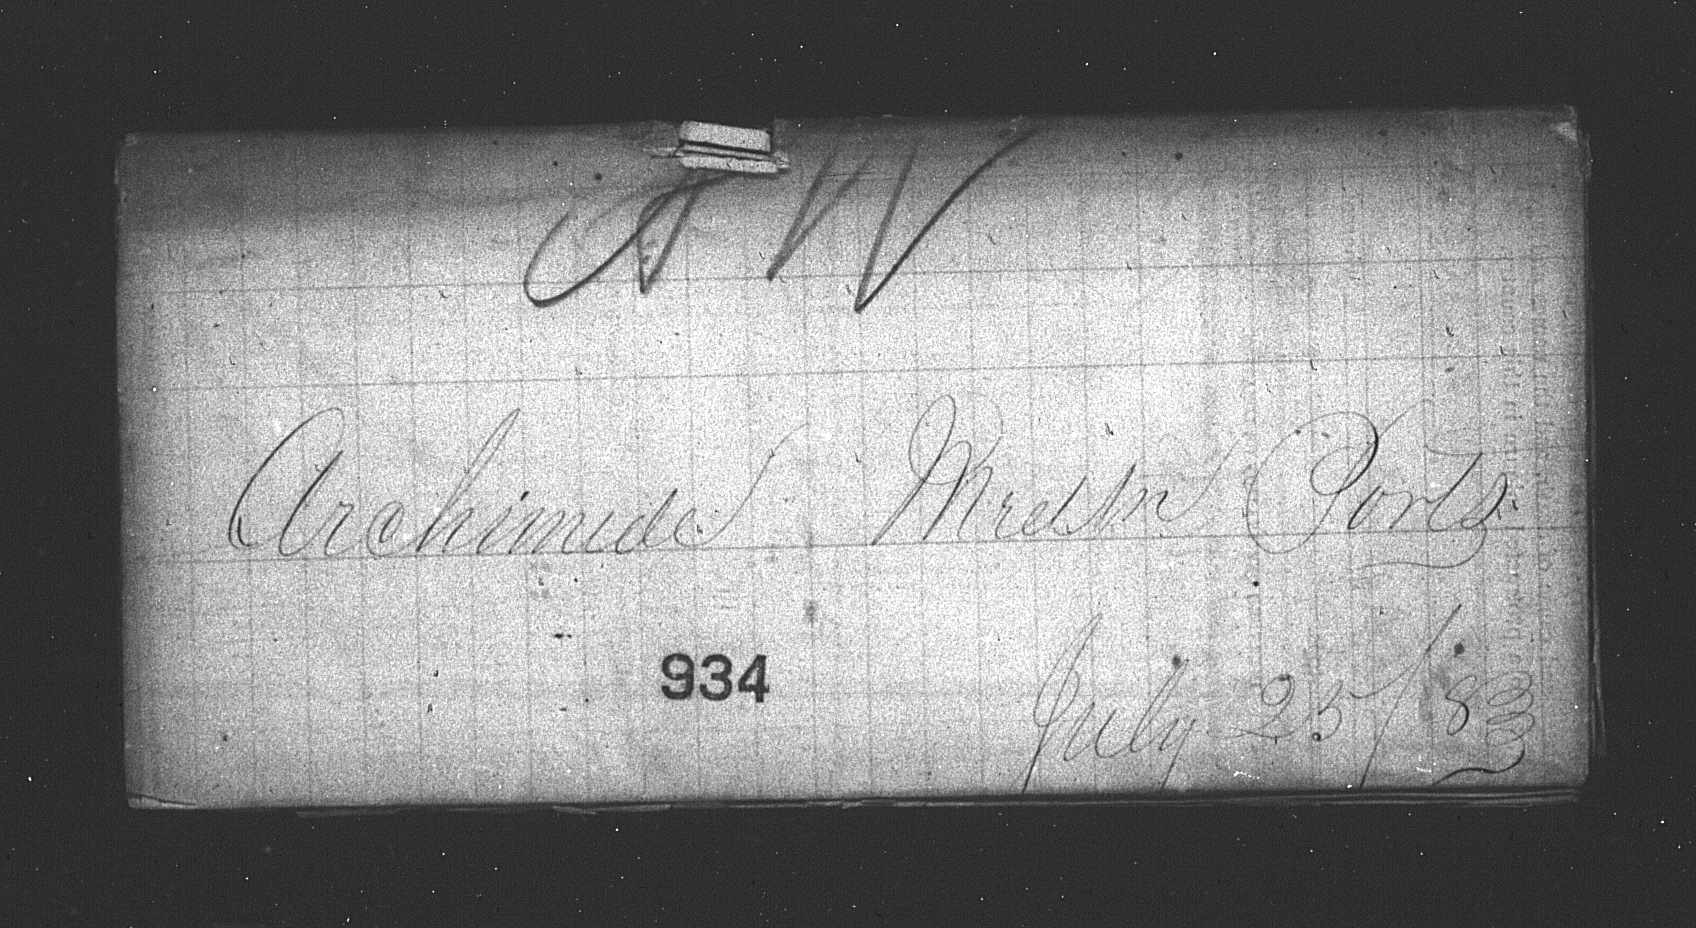 A W
Archimedes Medtn Ports
934
July 25/83